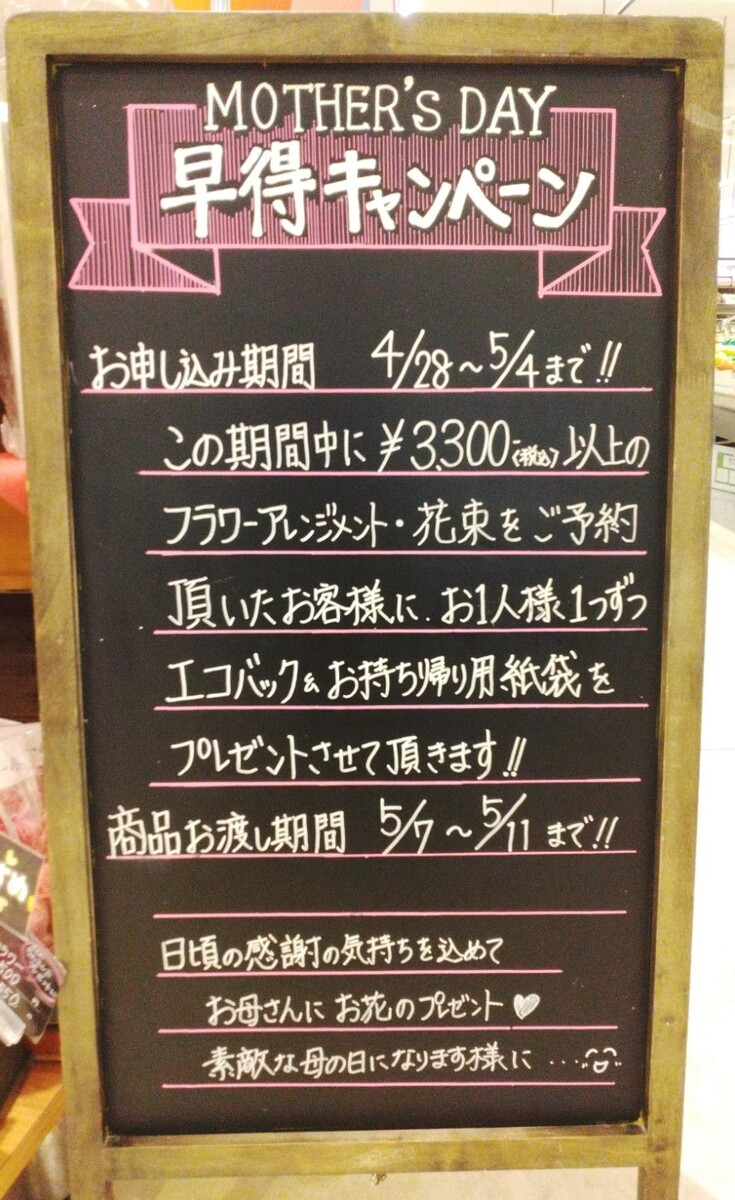 MOTHER'S DAY
早得キャンペーン
お申し込み期間 4/28～5/4まで!!
この期間中に¥3,300-(税込)以上の
フラワーアレンジメント・花束をご予約
頂いたお客様に、お1人様1つずつ
エコバック&お持ち帰り用紙袋を
プレゼントさせて頂きます!!
商品お渡し期間 5/7～5/11まで!!
日頃の感謝の気持ちを込めて
お母さんにお花のプレゼント♡
素敵な母の日になります様に…